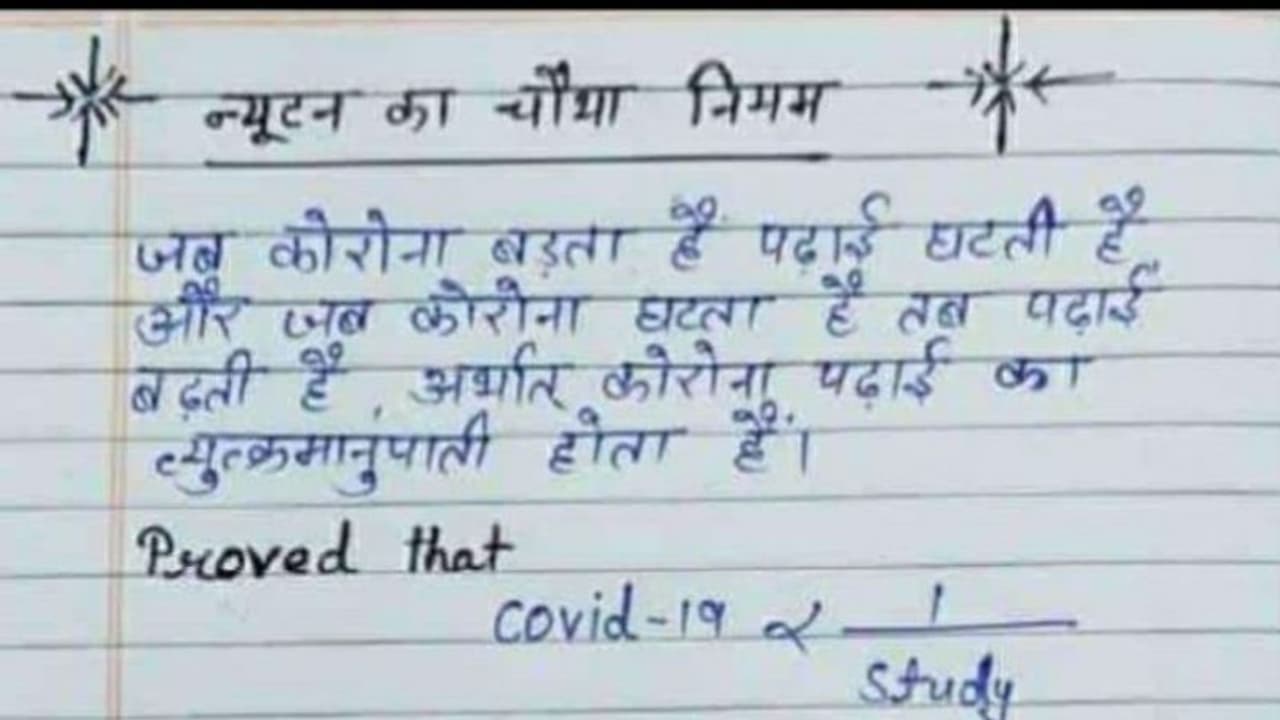 न्यूटन का चौथा नियम
जब कोरोना बड़ता है पढ़ाई घटती है
और जब कोरोना घटता है तब पढ़ाई
बढ़ती है, अर्थात् कोरोना पढ़ाई का
व्युत्क्रमानुपाती होता हैं।
Proved that
covid-19 ∝ 1
study